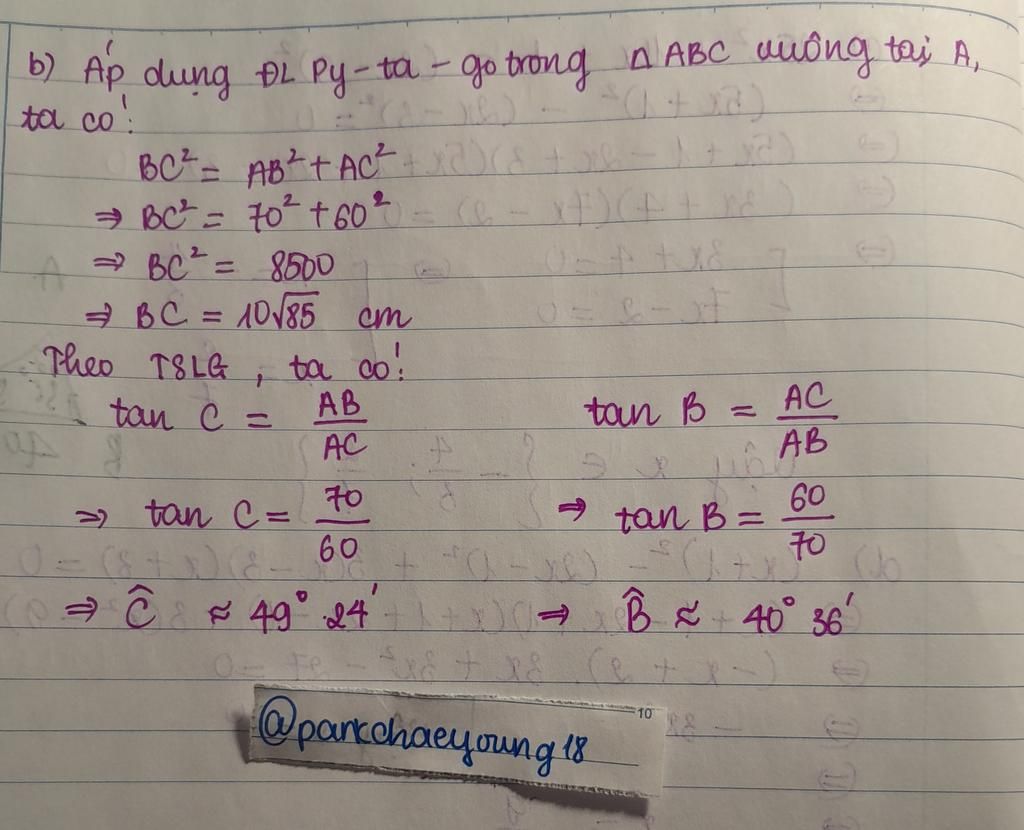 b) Áp dụng ĐL Py-ta-go trong Δ ABC vuông tại A,
ta có:
BC² = AB² + AC²
⇒ BC² = 70² + 60²
⇒ BC² = 8500
⇒ BC = 10√85 cm
Theo TSLG, ta có:
tan C = AB/AC tan B = AC/AB
⇒ tan C = 70/60 ⇒ tan B = 60/70
⇒ Ĉ ≈ 49° 24' ⇒ B̂ ≈ 40° 36'
10
@parkchaeyoung18